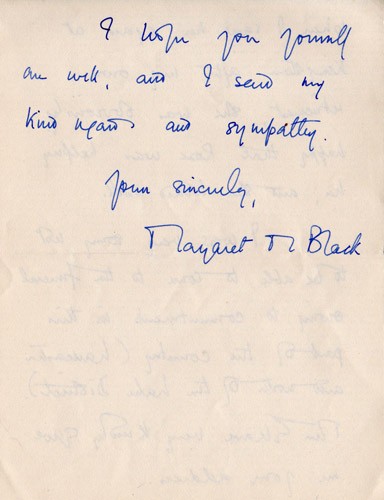 I hope you yourself
are well, and I send my
kind regards and sympathy.
Yours sincerely,
Margaret M Black